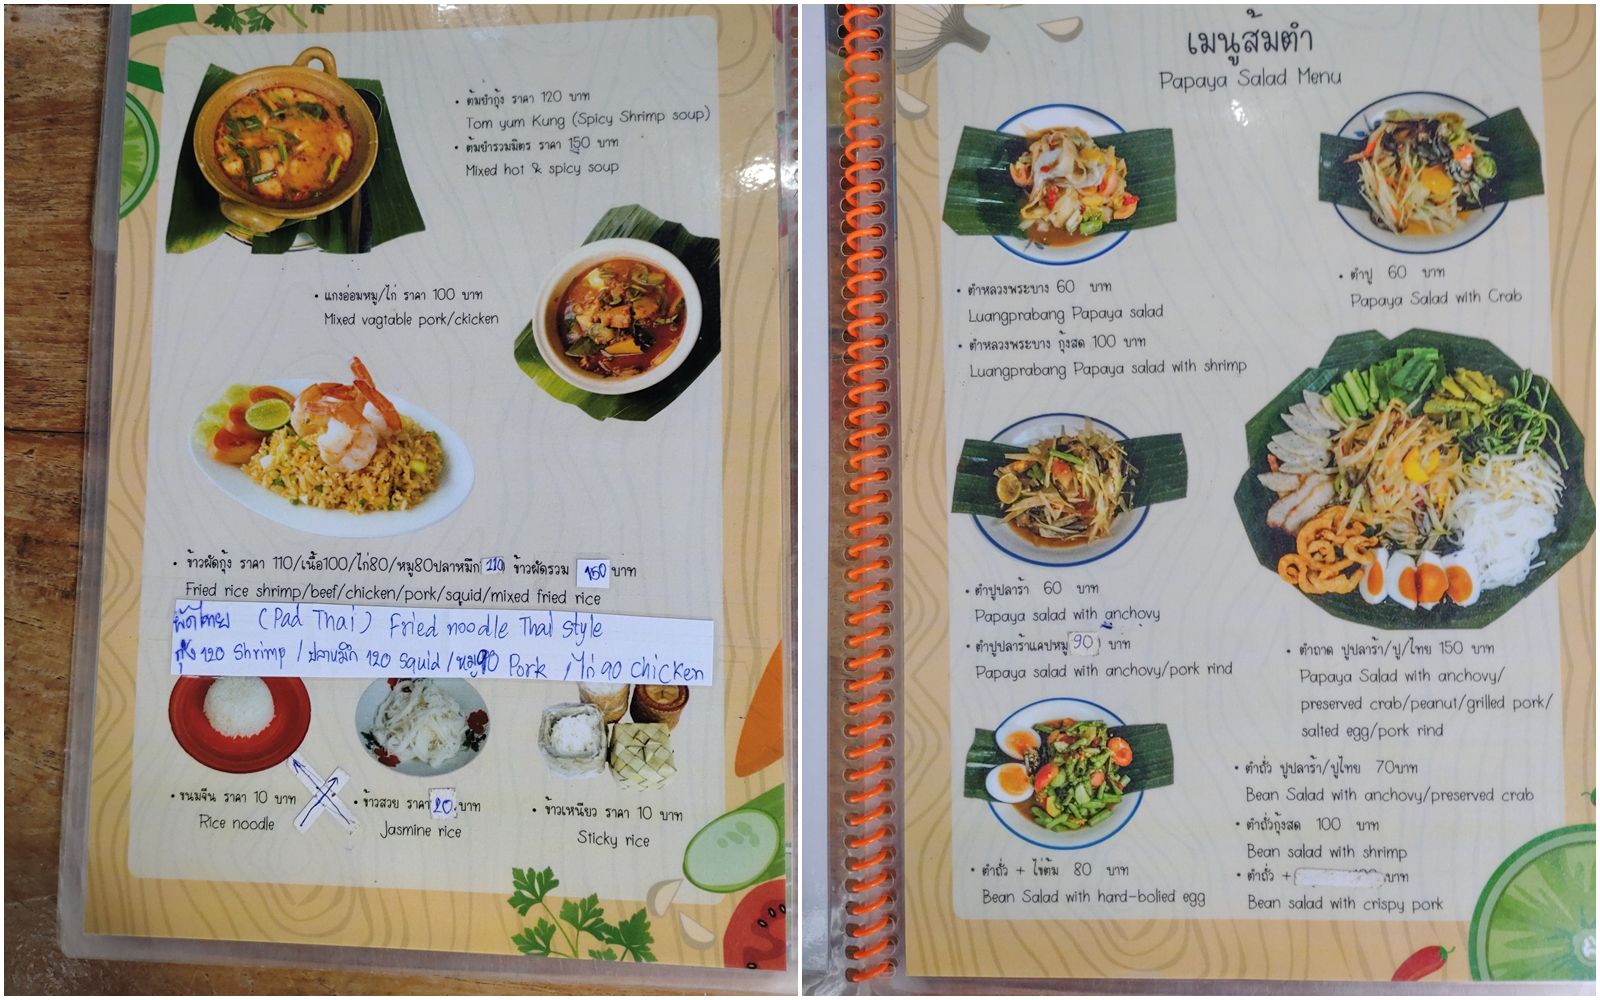 • ต้มยำกุ้ง ราคา 120 บาท
Tom yum Kung (Spicy Shrimp soup)
• ต้มยำรวมมิตร ราคา 150 บาท
Mixed hot & spicy soup
• แกงอ่อมหมู/ไก่ ราคา 100 บาท
Mixed vagtable pork/ckicken
• ข้าวผัดกุ้ง ราคา 110/เนื้อ100/ไก่80/หมู80ปลาหมึก110 ข้าวผัดรวม 150 บาท
Fried rice shrimp/beef/chicken/pork/squid/mixed fried rice
ผัดไทย (Pad Thai) Fried noodle Thai style
กุ้ง 120 Shrimp / ปลาหมึก 120 squid / หมู 90 Pork / ไก่ 90 chicken
• ขนมจีน ราคา 10 บาท
Rice noodle
• ข้าวสวย ราคา 20 บาท
Jasmine rice
• ข้าวเหนียว ราคา 10 บาท
Sticky rice
เมนูส้มตำ
Papaya Salad Menu
• ตำหลวงพระบาง 60 บาท
Luangprabang Papaya salad
• ตำหลวงพระบาง กุ้งสด 100 บาท
Luangprabang Papaya salad with shrimp
• ตำปู 60 บาท
Papaya Salad with Crab
• ตำปูปลาร้า 60 บาท
Papaya salad with anchovy
• ตำปูปลาร้าแคปหมู 90 บาท
Papaya salad with anchovy/pork rind
• ตำถาด ปูปลาร้า/ปู/ไทย 150 บาท
Papaya Salad with anchovy/
preserved crab/peanut/grilled pork/
salted egg/pork rind
• ตำถั่ว ปูปลาร้า/ปูไทย 70บาท
Bean Salad with anchovy/preserved crab
• ตำถั่วกุ้งสด 100 บาท
Bean salad with shrimp
• ตำถั่ว + ไข่ต้ม 80 บาท
Bean Salad with hard-bolied egg
• ตำถั่ว + บาท
Bean salad with crispy pork